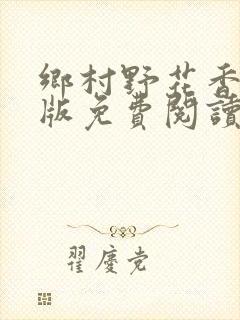 鄉村野花香
版免費閱讀
翟慶党